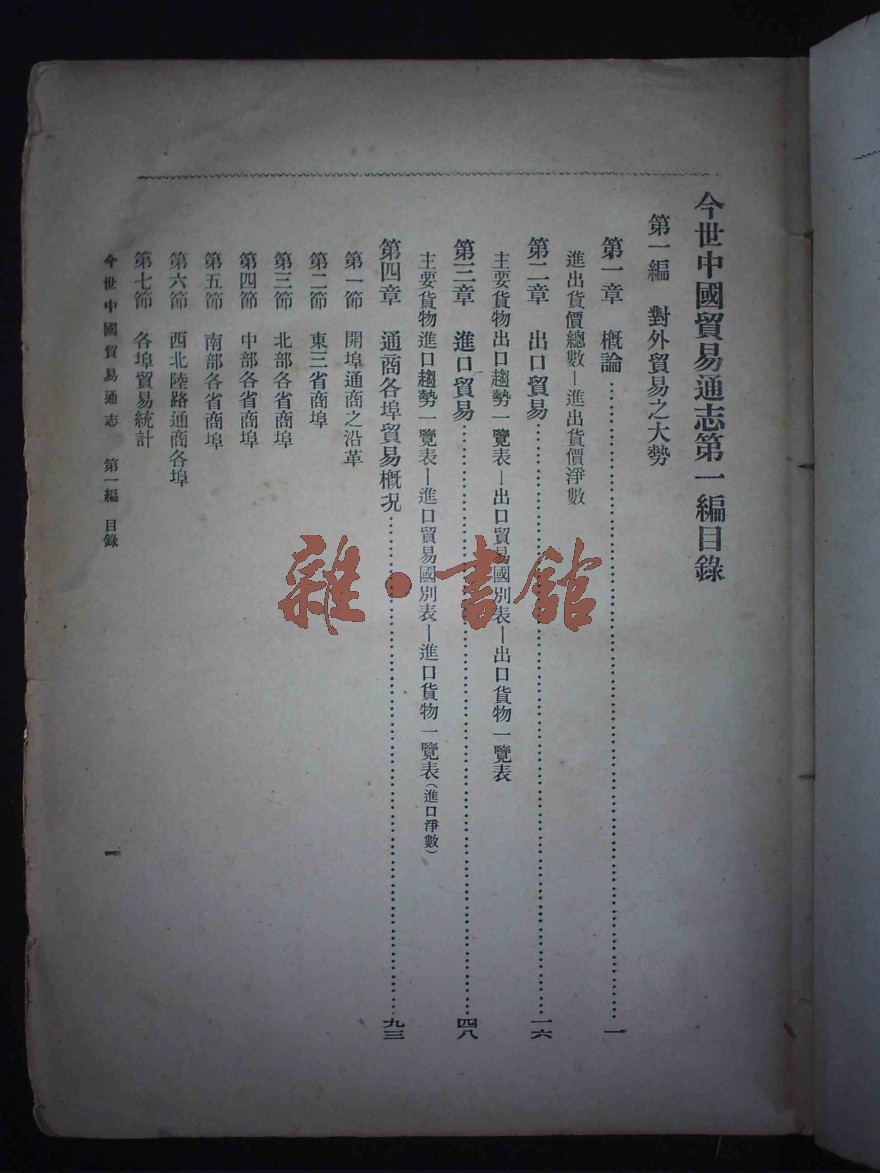 今世中國貿易通志第一編目錄
第一編　對外貿易之大勢
第一章　概論…………………………一
進出貨價總數—進出貨價淨數
第二章　出口貿易…………………………一六
主要貨物出口趨勢一覽表—出口貿易國別表—出口貨物一覽表
第三章　進口貿易…………………………四八
主要貨物進口趨勢一覽表—進口貿易國別表—進口貨物一覽表（進口淨數）
第四章　通商各埠貿易概況…………………………九三
第一節　開埠通商之沿革
第二節　東三省商埠
第三節　北部各省商埠
第四節　中部各省商埠
第五節　南部各省商埠
第六節　西北陸路通商各埠
第七節　各埠貿易統計
今世中國貿易通志　第一編　目錄　一
雜·書館